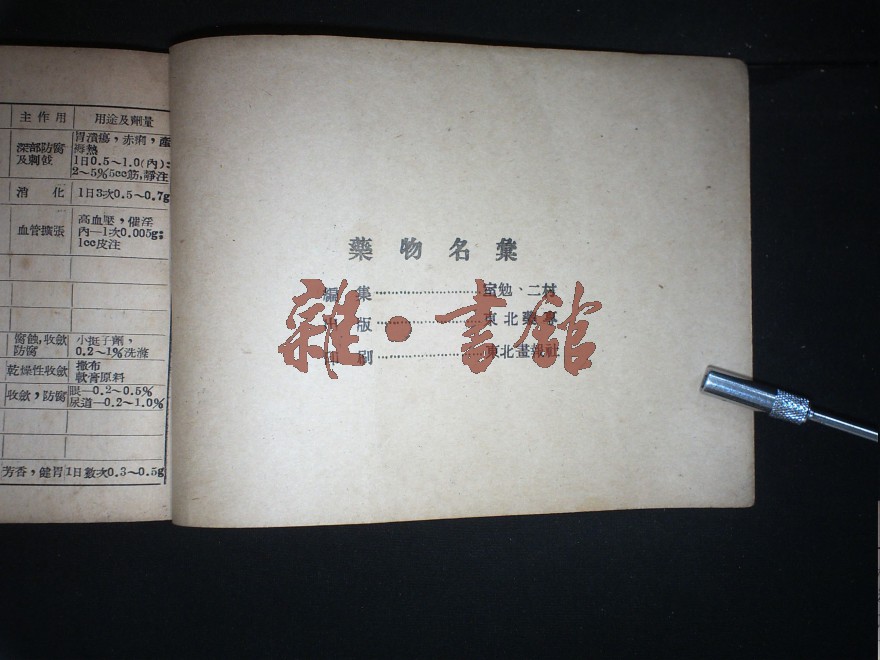 主作用 用途及劑量
深部防腐及刺戟 胃潰瘍，赤痢，產褥熱
1日0.5～1.0(內):
2～5%5cc筋,靜注
消化 1日3次0.5～0.7g
血管擴張 高血壓，催淫
內—1次0.005g;
1cc皮注
腐蝕,收斂 小挺子劑，
防腐 0.2～1%洗滌
乾燥性收斂 撒布
軟膏原料
收斂，防腐 眼—0.2～0.5%
尿道—0.2～1.0%
芳香，健胃 1日數次0.3～0.5g
藥物名彙
編集…………………室勉、二村
出版…………………東北藥專
印刷…………………東北畫報社
雜·書館